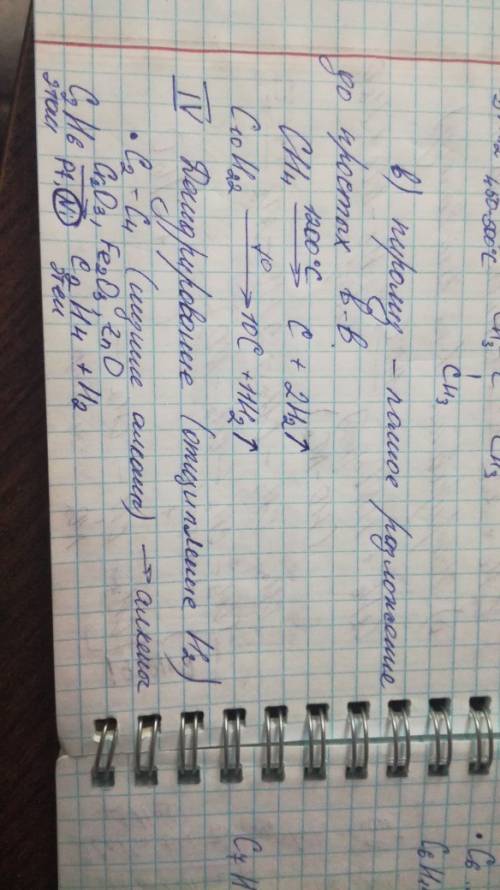 CH₃ C CH₃
CH₃
в) пиролиз – полное разложение
до простых в-в
CH₄ 1200°C → C + 2H₂↑
C₁₀H₂₂ t° → 10C + 11H₂↑
IV Дегидрирование (отщипление H₂)
• C₂ – C₄ (низшие алканы) → алкены
Cr₂O₃, Fe₂O₃, ZnO
C₂H₆ → C₂H₄ + H₂
этан Pt, Ni этен
C₇H
• C₆
C₆H₁